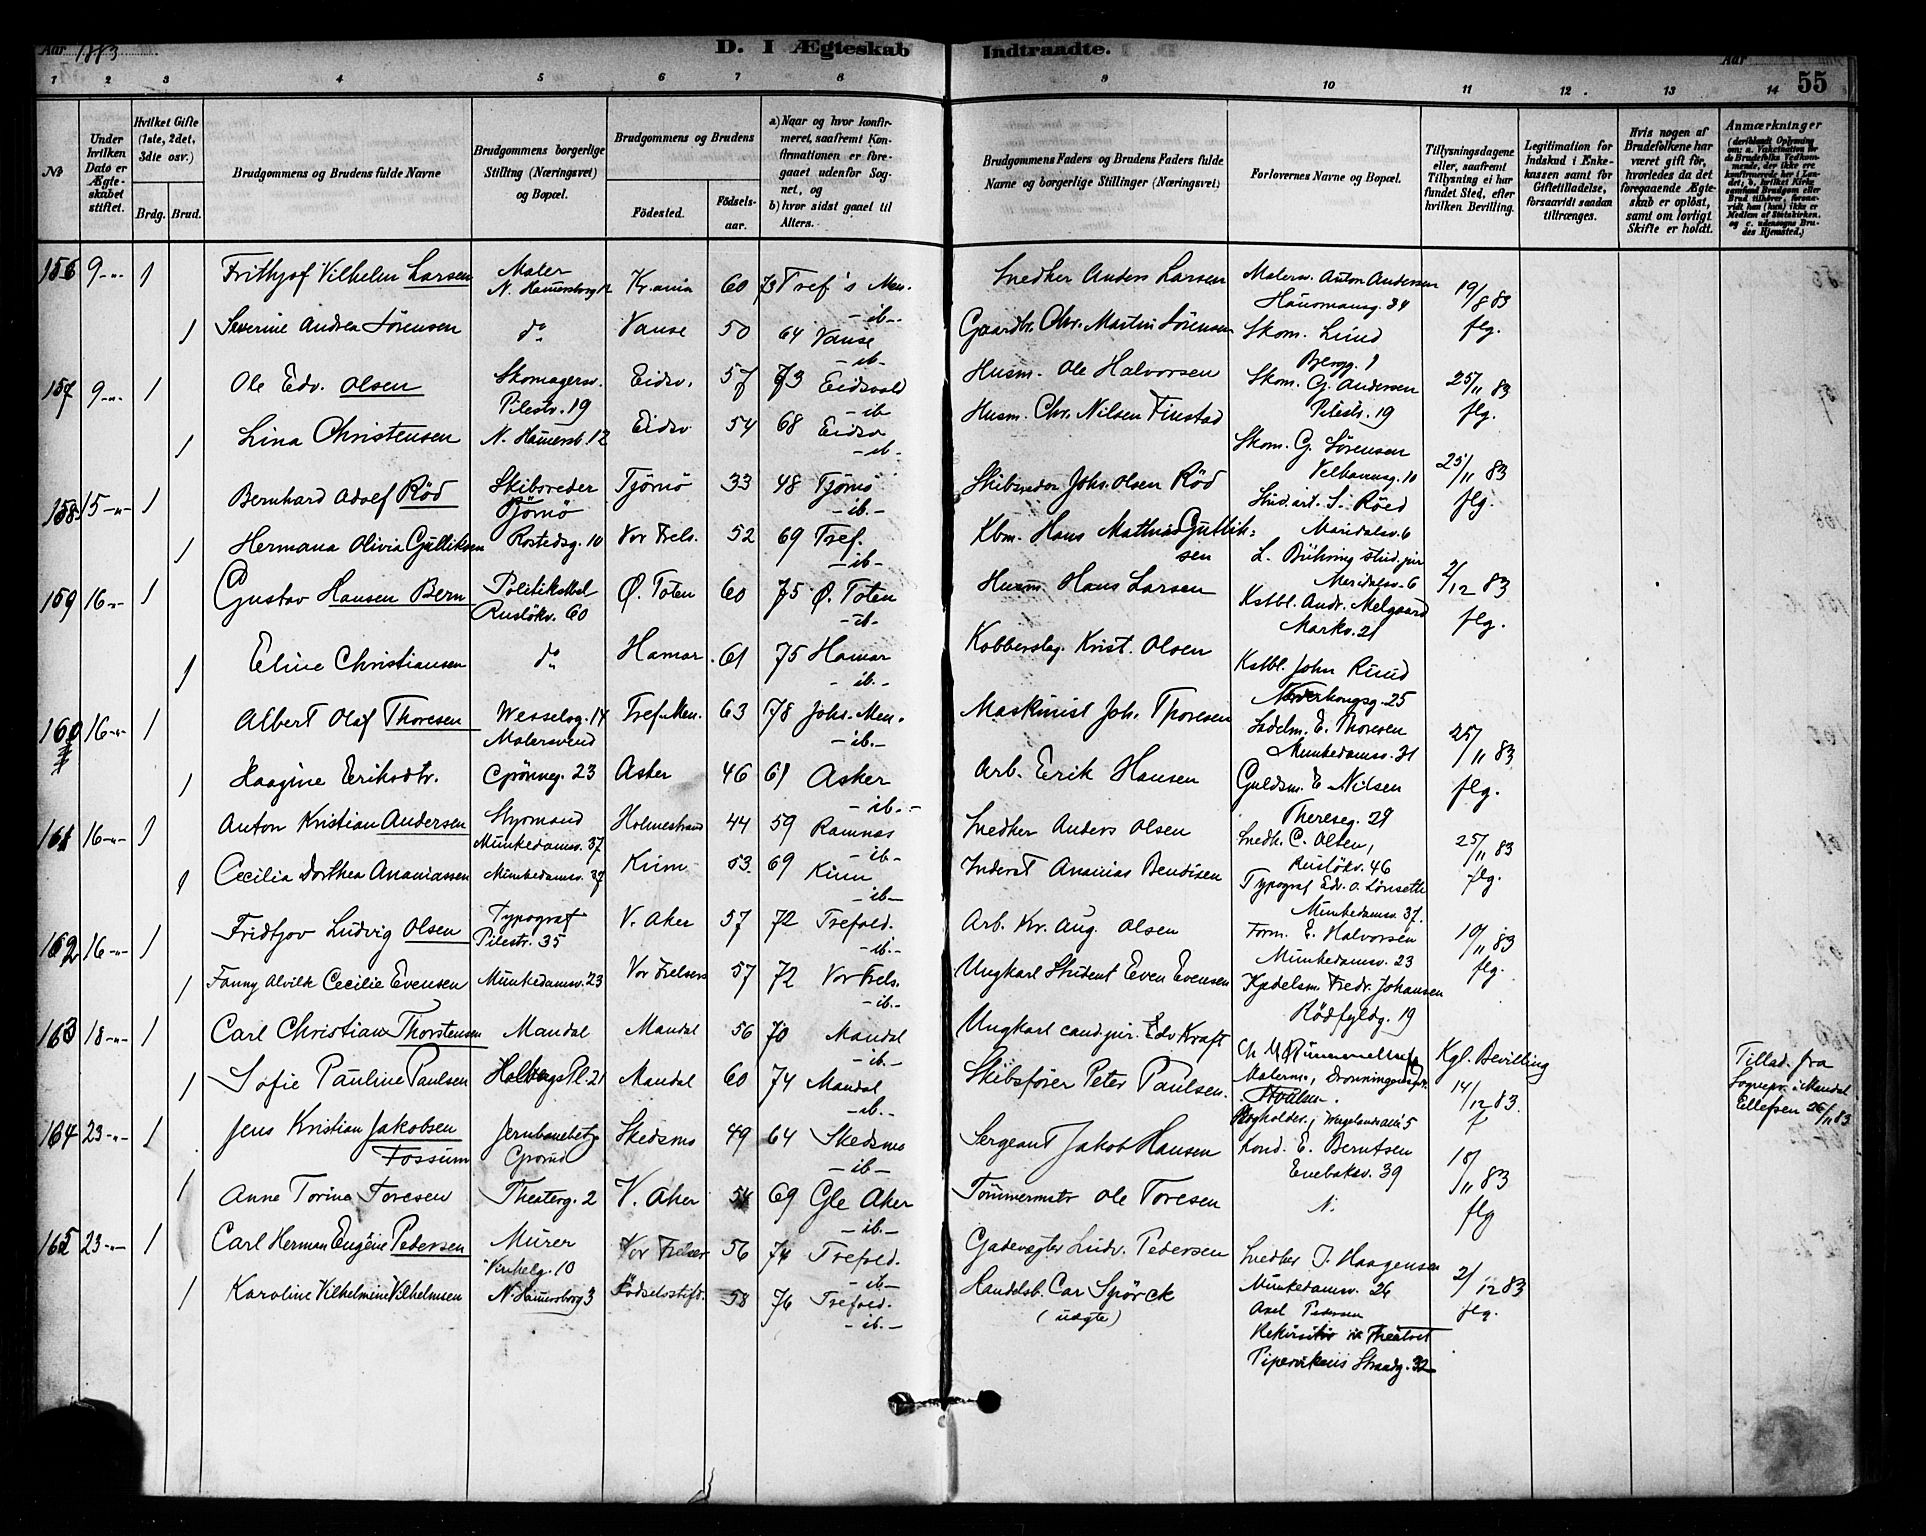 Aar 1883
D. I Ægteskab Indtraadte.
Aar
55
1 2 3 4 5 6 7 8 9 10 11 12 13 14
No
Under hvilken Dato er Ægteskabet stiftet.
Hvilket Gifte (1ste, 2det, 3die osv.)
Brdg. Brud.
Brudgommens og Brudens fulde Navne
Brudgommens borgerlige Stilling (Næringsvei) og Bopæl.
Brudgommens og Brudens
Födested.
Födsels-aar.
a) Naar og hvor konfirmeret, saafremt Konfirmationen er foregaaet udenfor Sognet, og
b) hvor sidst gaaet til Alters.
Brudgommens Faders og Brudens Faders fulde Navne og borgerlige Stillinger (Næringsvei)
Forlovernes Navne og Bopæl.
Tillysningsdagene eller, saafremt Tillysning ei har fundet Sted, efter hvilken Bevilling.
Legitimation for Indskud i Enkekassen samt for Giftetilladelse, forsaavidt saadan tiltrænges.
Hvis nogen af Brudefolkene har været gift før, hvorledes da det foregaaende Ægteskab er oplöst, samt om lovligt Skifte er holdt.
Anmærkninger
(deriblandt Oplysning om: a. Vakcination for de Brudefolks Vedkommende, der ikke ere konfirmerede her i Landet; b. hvilket Kirkesamfund Brudgom eller Brud tilhører, forsaavidt han (hun) ikke er Medlem af Statskirken, og c. udensogns Brudes Hjemsted.)
156 9-"- 1 Frithjof Vilhelm Larsen Maler N. Hamersborg 12 Kr.ania 60 73 Tref's Men. -ib- Snedker Anders Larsen Malersv. Anton Andersen Hausmansg. 34 19/8 83
1 Severine Andrea Sørensen do Vanse 50 64 Vanse -ib- Gaardbr. Chr. Martin Sørensen Skom. Lund Bjergg. 1 flg.
157 9-"- 1 Ole Edv. Olsen Skomagersv. Pilestr. 19 Eidsv. 57 73 Eidsvold -ib- Husm. Ole Halvorsen Skom. G. Andersen Pilestr. 19 25/11 83 flg.
1 Lina Christensen N. Hamersb. 12 Eidsv 54 68 Eidsv -ib- Husm. Chr. Nilsen Finstad Skom. G. Sørensen Velhavensg. 10
158 15-"- 1 Bernhard Adolf Röd Skibsreder Tjömö Tjömö 33 48 Tjömö -ib- Skibsreder Johs. Olsen Röd Stud. art. S. Röed Maridalsv. 6 25/11 83 flg.
1 Hermana Olivia Gulliksen Rostedsg. 10 Vor Frels. 52 69 Tref. -ib- Kbm. Hans Mathias Gulliksen L. Bühring stud. jur Maridalsv. 6
159 16-"- 1 Gustav Hansen Bern Politikstbl Ruslökv. 60 Ø. Toten 60 75 Ø. Toten -ib- Husm. Hans Larsen Kstbl. Andr. Melgaard Markv. 21 2/12 83 flg.
1 Eline Christiansen do Hamar 61 75 Hamar -ib- Kobberslag. Krist. Olsen Kstbl. John Ruud Norderhougsg. 25
160 16-"- 1 Albert Olaf Thoresen Wesselsg. 14 Malersvend Tref. Men. 63 78 Johs. Men. -ib- Maskinist Joh. Thoresen Sadelm. E. Thoresen Munkedamsv. 31 25/11 83 flg.
1 Haagine Eriksdtr. Grönneg. 23 Asker 46 61 Asker -ib- Arb. Erik Hansen Guldsm. E Nilsen Thereseg. 29
161 16-"- 1 Anton Kristian Andersen Styrmand Munkedamsv. 37 Holmestrand 44 59 Ramnæs -ib- Snedker Anders Olsen Snedk. C. Olsen, Ruslökv. 46 25/11 83 flg.
1 Cecilia Dorthea Ananiassen Munkedamsv. 37 Kinn 53 69 Kinn -ib- Inderst Ananias Bendixen Typograf Edv. O. Lönseth Munkedamsv. 37.
162 16-"- 1 Fridtjov Ludvig Olsen Typograf Pilestr. 35 V. Aker 57 72 Trefold. -ib- Arb. Kr. Aug. Olsen Form. E. Halvorsen Munkedamsv. 23 18/11 83 flg.
1 Fanny Alvilde Cecilie Evensen Munkedamsv. 23 Vor Frelsers 57 72 Vor Frels. -ib- Ungkarl Student Even Evensen Kjedelsm. Fredr. Johansen Rödfyldg. 19
163 18-"- 1 Carl Christian Thorstensen Mandal Mandal 56 70 Mandal -ib- Ungkarl cand. jur. Edv Kraft Malerm., Dronningensgt. Kgl. Bevilling 14/12 83. Tillad. fra Sognepr. i Mandal Ellefsen 26/11 83
1 Sofie Pauline Paulsen Holbergs Pl. 21 Mandal 60 74 Mandal -ib- Skibsfører Peter Paulsen. Bogholder, Wergelandsvei 5
164 23-"- 1 Jens Kristian Jakobsen Fossum Jernbanebetj Grorud Skedsmo 49 64 Skedsmo -ib- Sergeant Jakob Hansen Kond. E. Berntsen Enebakv. 39 18/11 83 flg
1 Anne Torine Toresen Theaterg. 2 V. Aker 54 69 Gle Aker -ib- Tömmermstr Ole Toresen N.
165 23-"- 1 Carl Herman Eugéne Pedersen Murer Vinkelg. 10 Vor Frelser 56 74 Trefold. -ib- Gadevægter Ludv. Pedersen Snedker J. Haagensen Munkedamsv. 26 2/12 83 flg.
1 Karoline Vilhelmine Vilhelmsen N. Hamersborg 3 Födselsstift. 58 76 Trefold. -ib- Handelsb. Car Spörck (uægte) Axel Pedersen Rekvisitör v. Theatret Pipervikens Strandg. 32